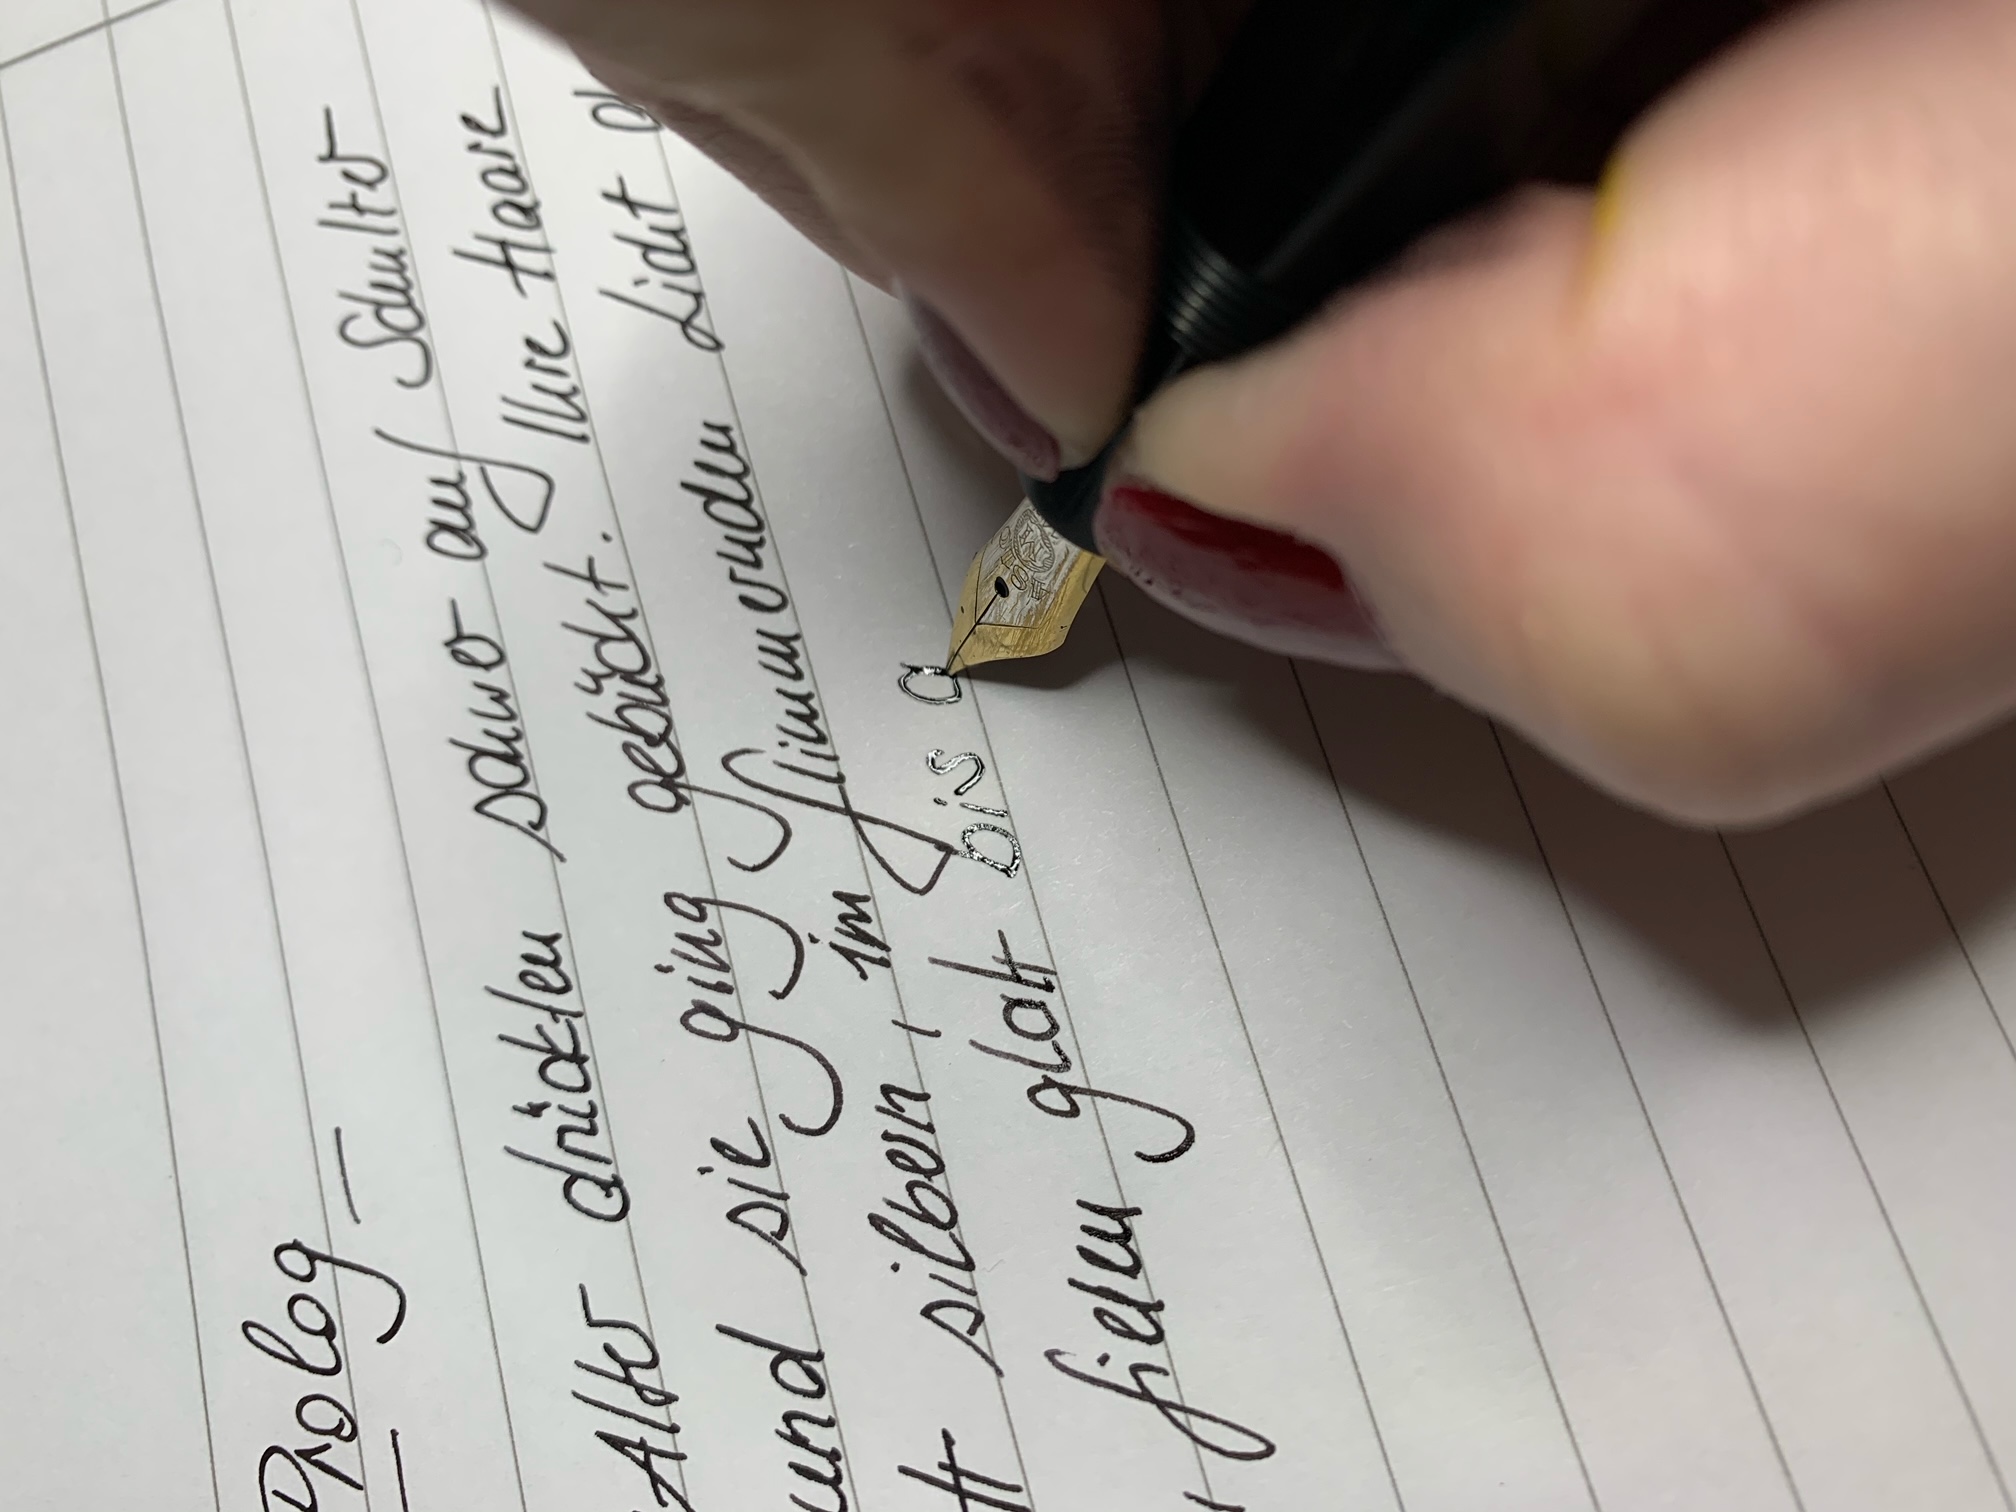 Prolog -
Alter drückten schwer auf Schulter
und sie ging gebückt. Ihre Haare
silbern, im flimmernden Licht d
fielen glatt bis a